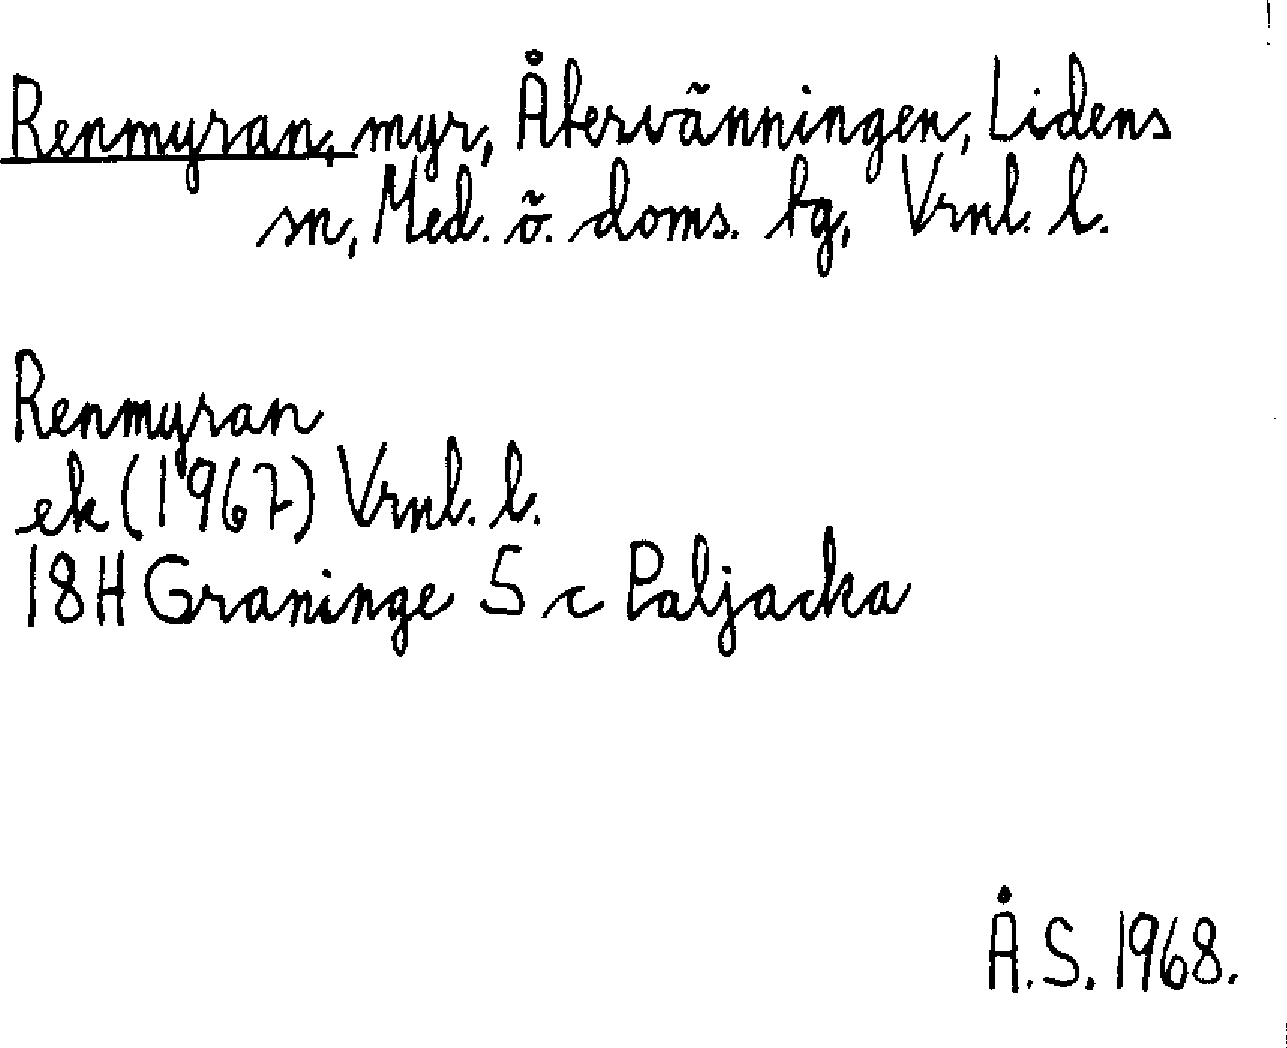 Renmyran, myr, Återvänningen, Lidens
sn, Med. ö. doms. tg, Vrnl. l.
Renmyran
ek (1967) Vrnl. l.
18H Graninge 5 c Paljacka
Å.S. 1968.